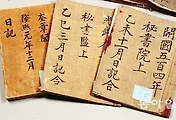 開國五百四年
秘書院上
乙未十一月日記合
秘書監上
乙巳三月日記合
奎章閣
隆熙元年十二月
日記